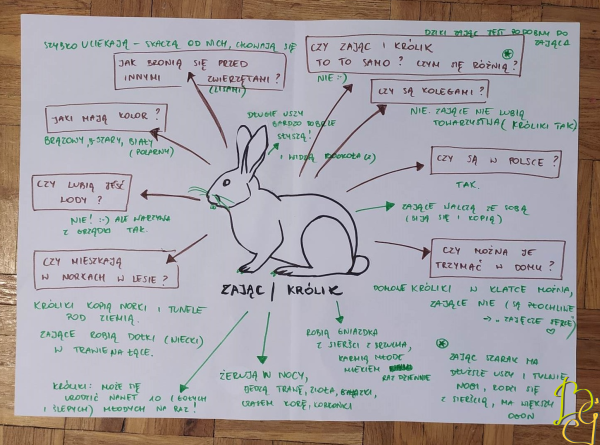 SZYBKO UCIEKAJĄ - SKACZĄ OD NICH, CHOWAJĄ SIĘ
DZIKI ZAJĄC JEST PODOBNY DO
ZAJĄCA
JAK BRONIĄ SIĘ PRZED
INNYMI ZWIERZĘTAMI?
(LISAMI)
CZY ZAJĄC I KRÓLIK
TO TO SAMO? CZYM SIĘ RÓŻNIĄ?
NIE :)
CZY SĄ KOLEGAMI?
NIE. ZAJĄCE NIE LUBIĄ
TOWARZYSTWA (KRÓLIKI TAK)
JAKI MAJĄ KOLOR?
BRĄZOWY, SZARY, BIAŁY
(POLARNY)
DŁUGIE USZY
BARDZO DOBRZE
SŁYSZĄ!
I WIDZĄ DOOKOŁA
CZY SĄ W POLSCE?
TAK.
CZY LUBIĄ JEŚĆ
LODY?
NIE! :-) ALE WARZYWA
Z GRZĄDKI TAK.
ZAJĄCE WALCZĄ ZE SOBĄ
(BIJĄ SIĘ I KOPIĄ)
CZY MIESZKAJĄ
W NORKACH W LESIE?
CZY MOŻNA JE
TRZYMAĆ W DOMU?
ZAJĄC / KRÓLIK
DOMOWE KRÓLIKI W KLATCE MOŻNA,
ZAJĄCE NIE (SĄ PŁOCHLIWE
→ ZAJĘCZE SERCE)
KRÓLIKI KOPIĄ NORKI I TUNELE
POD ZIEMIĄ.
ZAJĄCE ROBIĄ DOŁKI (NIECKI)
W TRAWIE NA ŁĄCE.
ROBIĄ GNIAZDKA
Z SIERŚCI Z BRZUCHA,
KARMIĄ MŁODE
MLEKIEM RAZ DZIENNIE
KRÓLIKI: MOŻE SIĘ
URODZIĆ NAWET 10 (GOŁYCH
I ŚLEPYCH) MŁODYCH NA RAZ!
ŻERUJĄ W NOCY,
JEDZĄ TRAWĘ, ZIOŁA,
CZASEM KORĘ,
ZAJĄC SZARAK MA
DŁUŻSZE USZY I TYLNE
NOGI, RODZI SIĘ
Z SIERŚCIĄ, MA WIĘKSZY
OGON